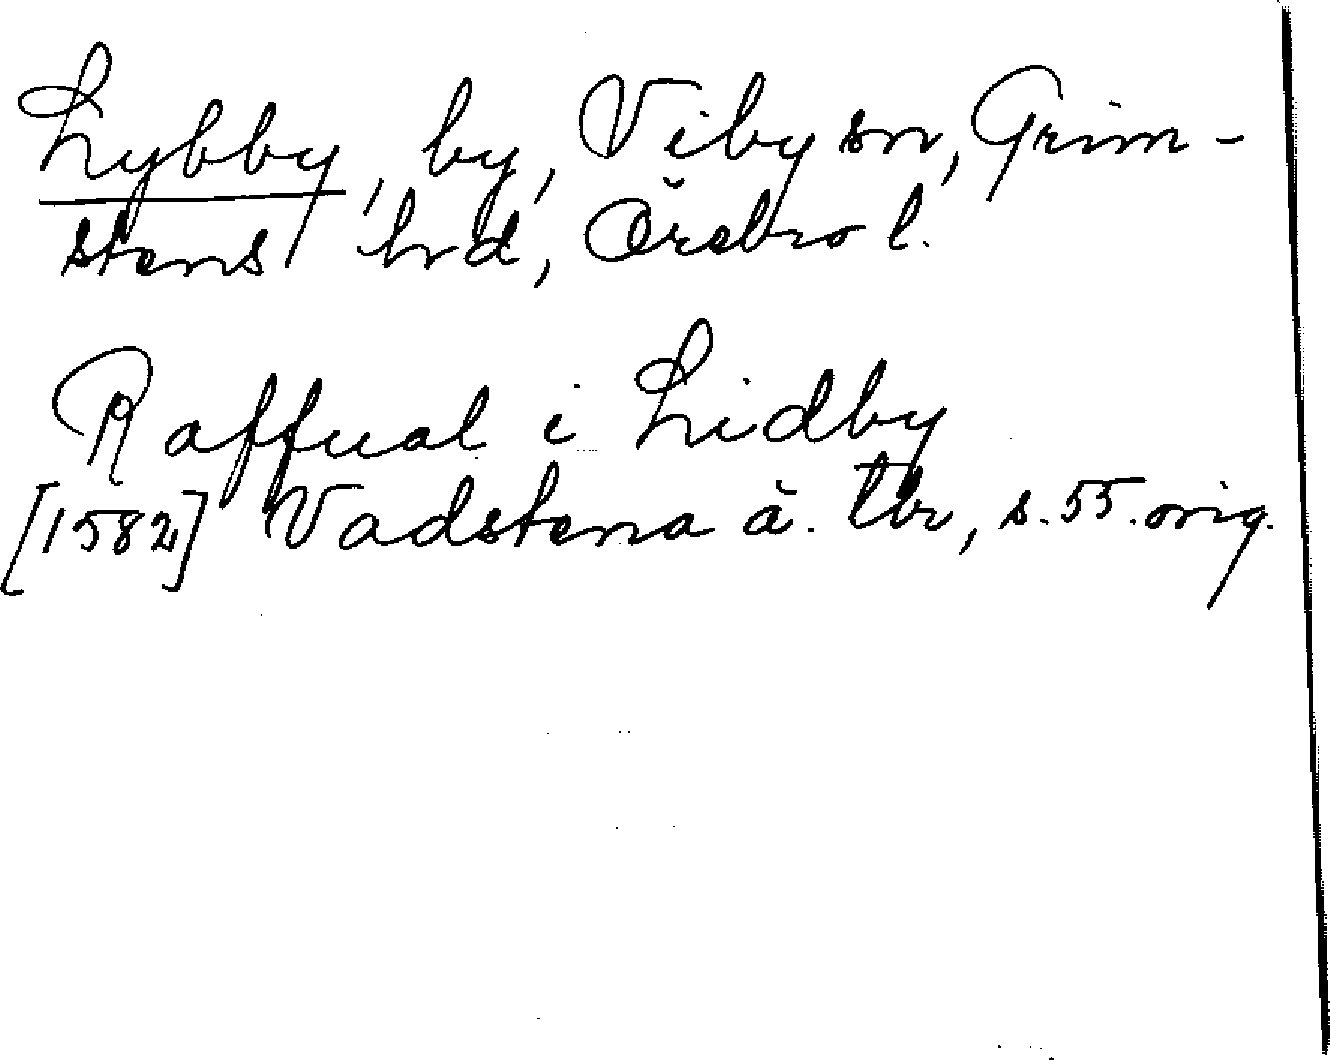 Lybby, by, Viby sn, Grim-
stens hrd, Örebro l.
Raffual i Lidby
[1582] Vadstena ä. tbr, s. 55. orig.